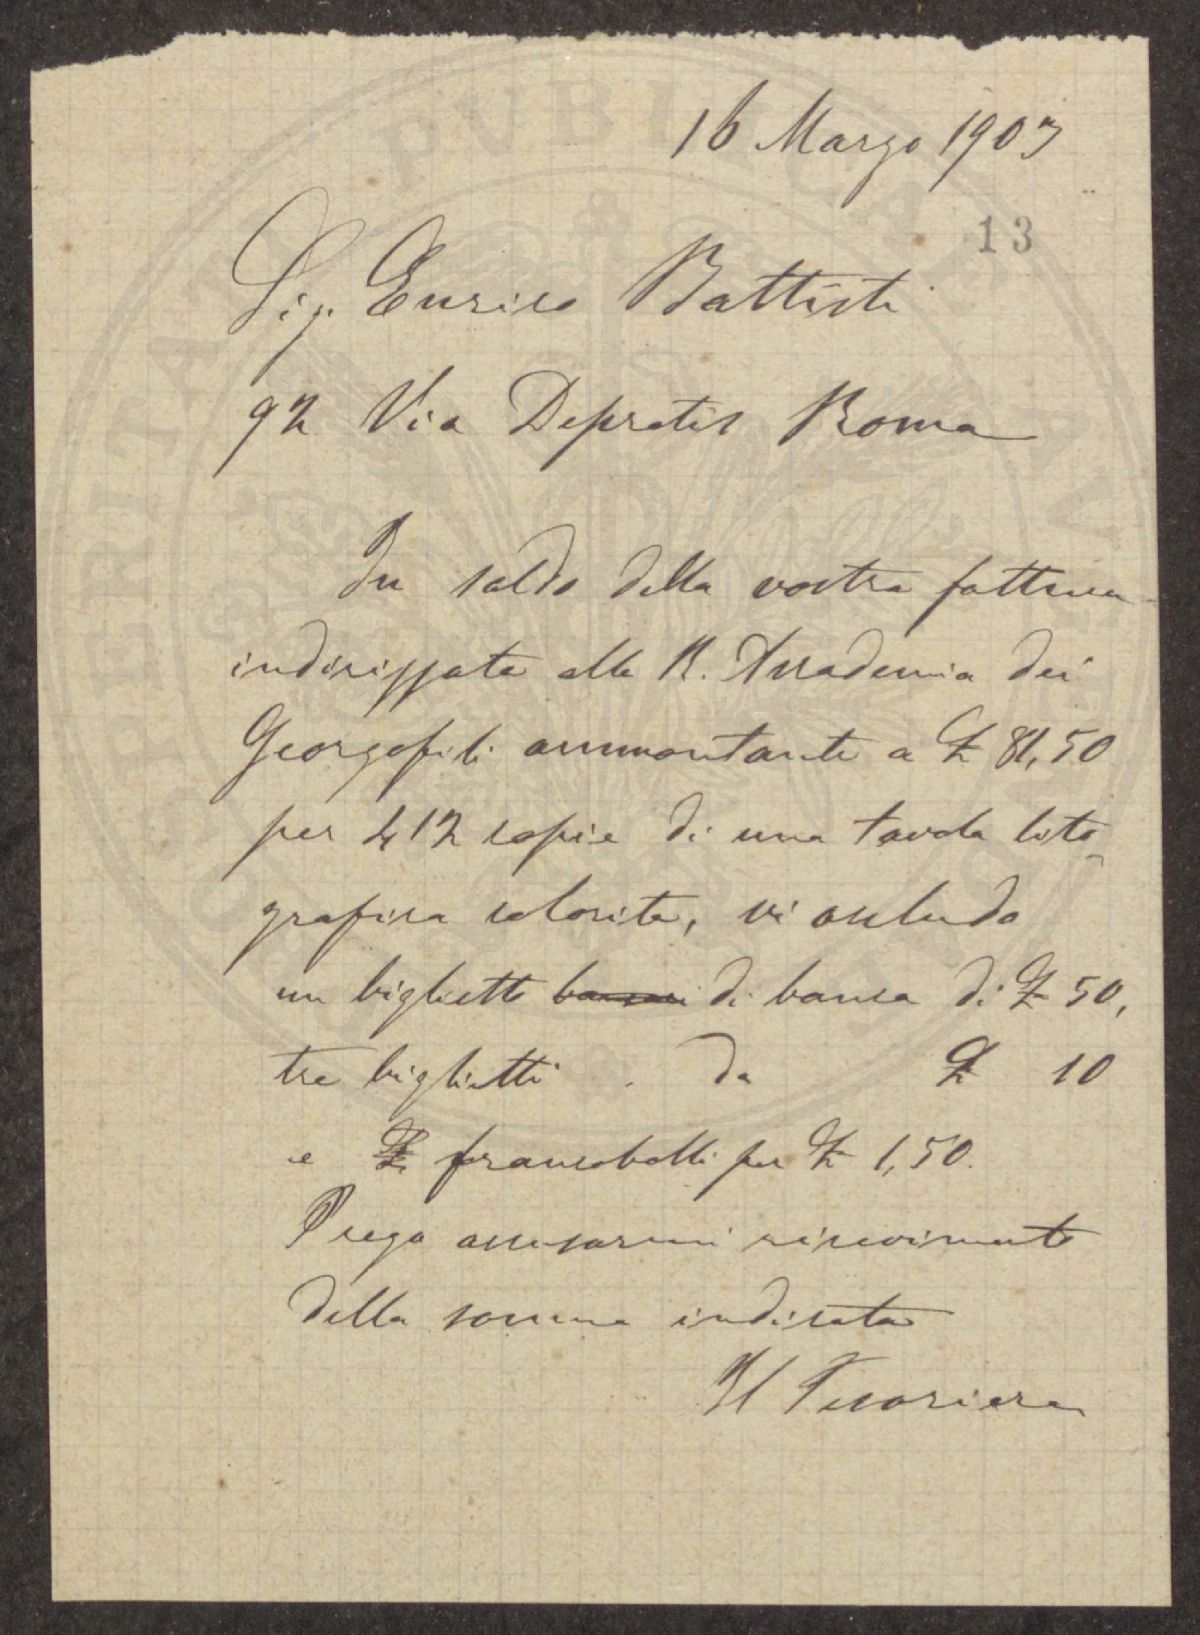 16 Marzo 1903
13
Sig. Enrico Battisti
92 Via Depretis Roma
In saldo della vostra fattura
indirizzata alla R. Accademia dei
Georgofili ammontante a £ 81,50
per 412 copie di una tavola lito
grafica colorita, vi accludo
un biglietto di banca di £ 50,
tre biglietti da £ 10
e £ francobolli per £ 1,50.
Prego accusarmi ricevimento
della somma indicata
Il Tesoriere